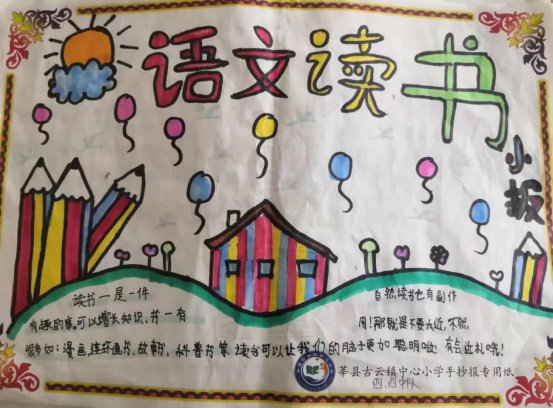 语文读书
小报
读书一是一件
有趣的事。可以增长知识,书一有
很多如:漫画,连环画书,故事书,科普书等,读书可以让我们的脑子更加聪明啦
自然读书也有副作
用!那就是不要太近,不然,
有会近礼哦!
莘县古云镇中心小学手抄报专用纸